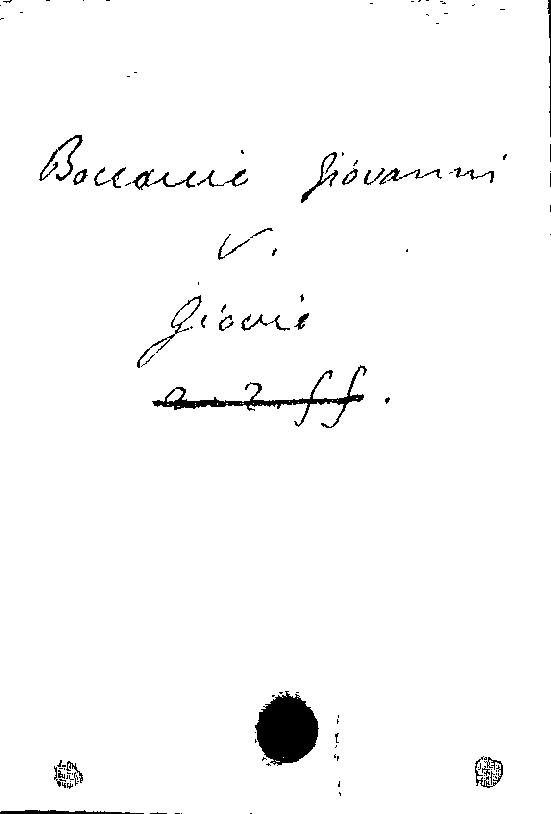 Boccaccio Giovanni
V.
Giovio